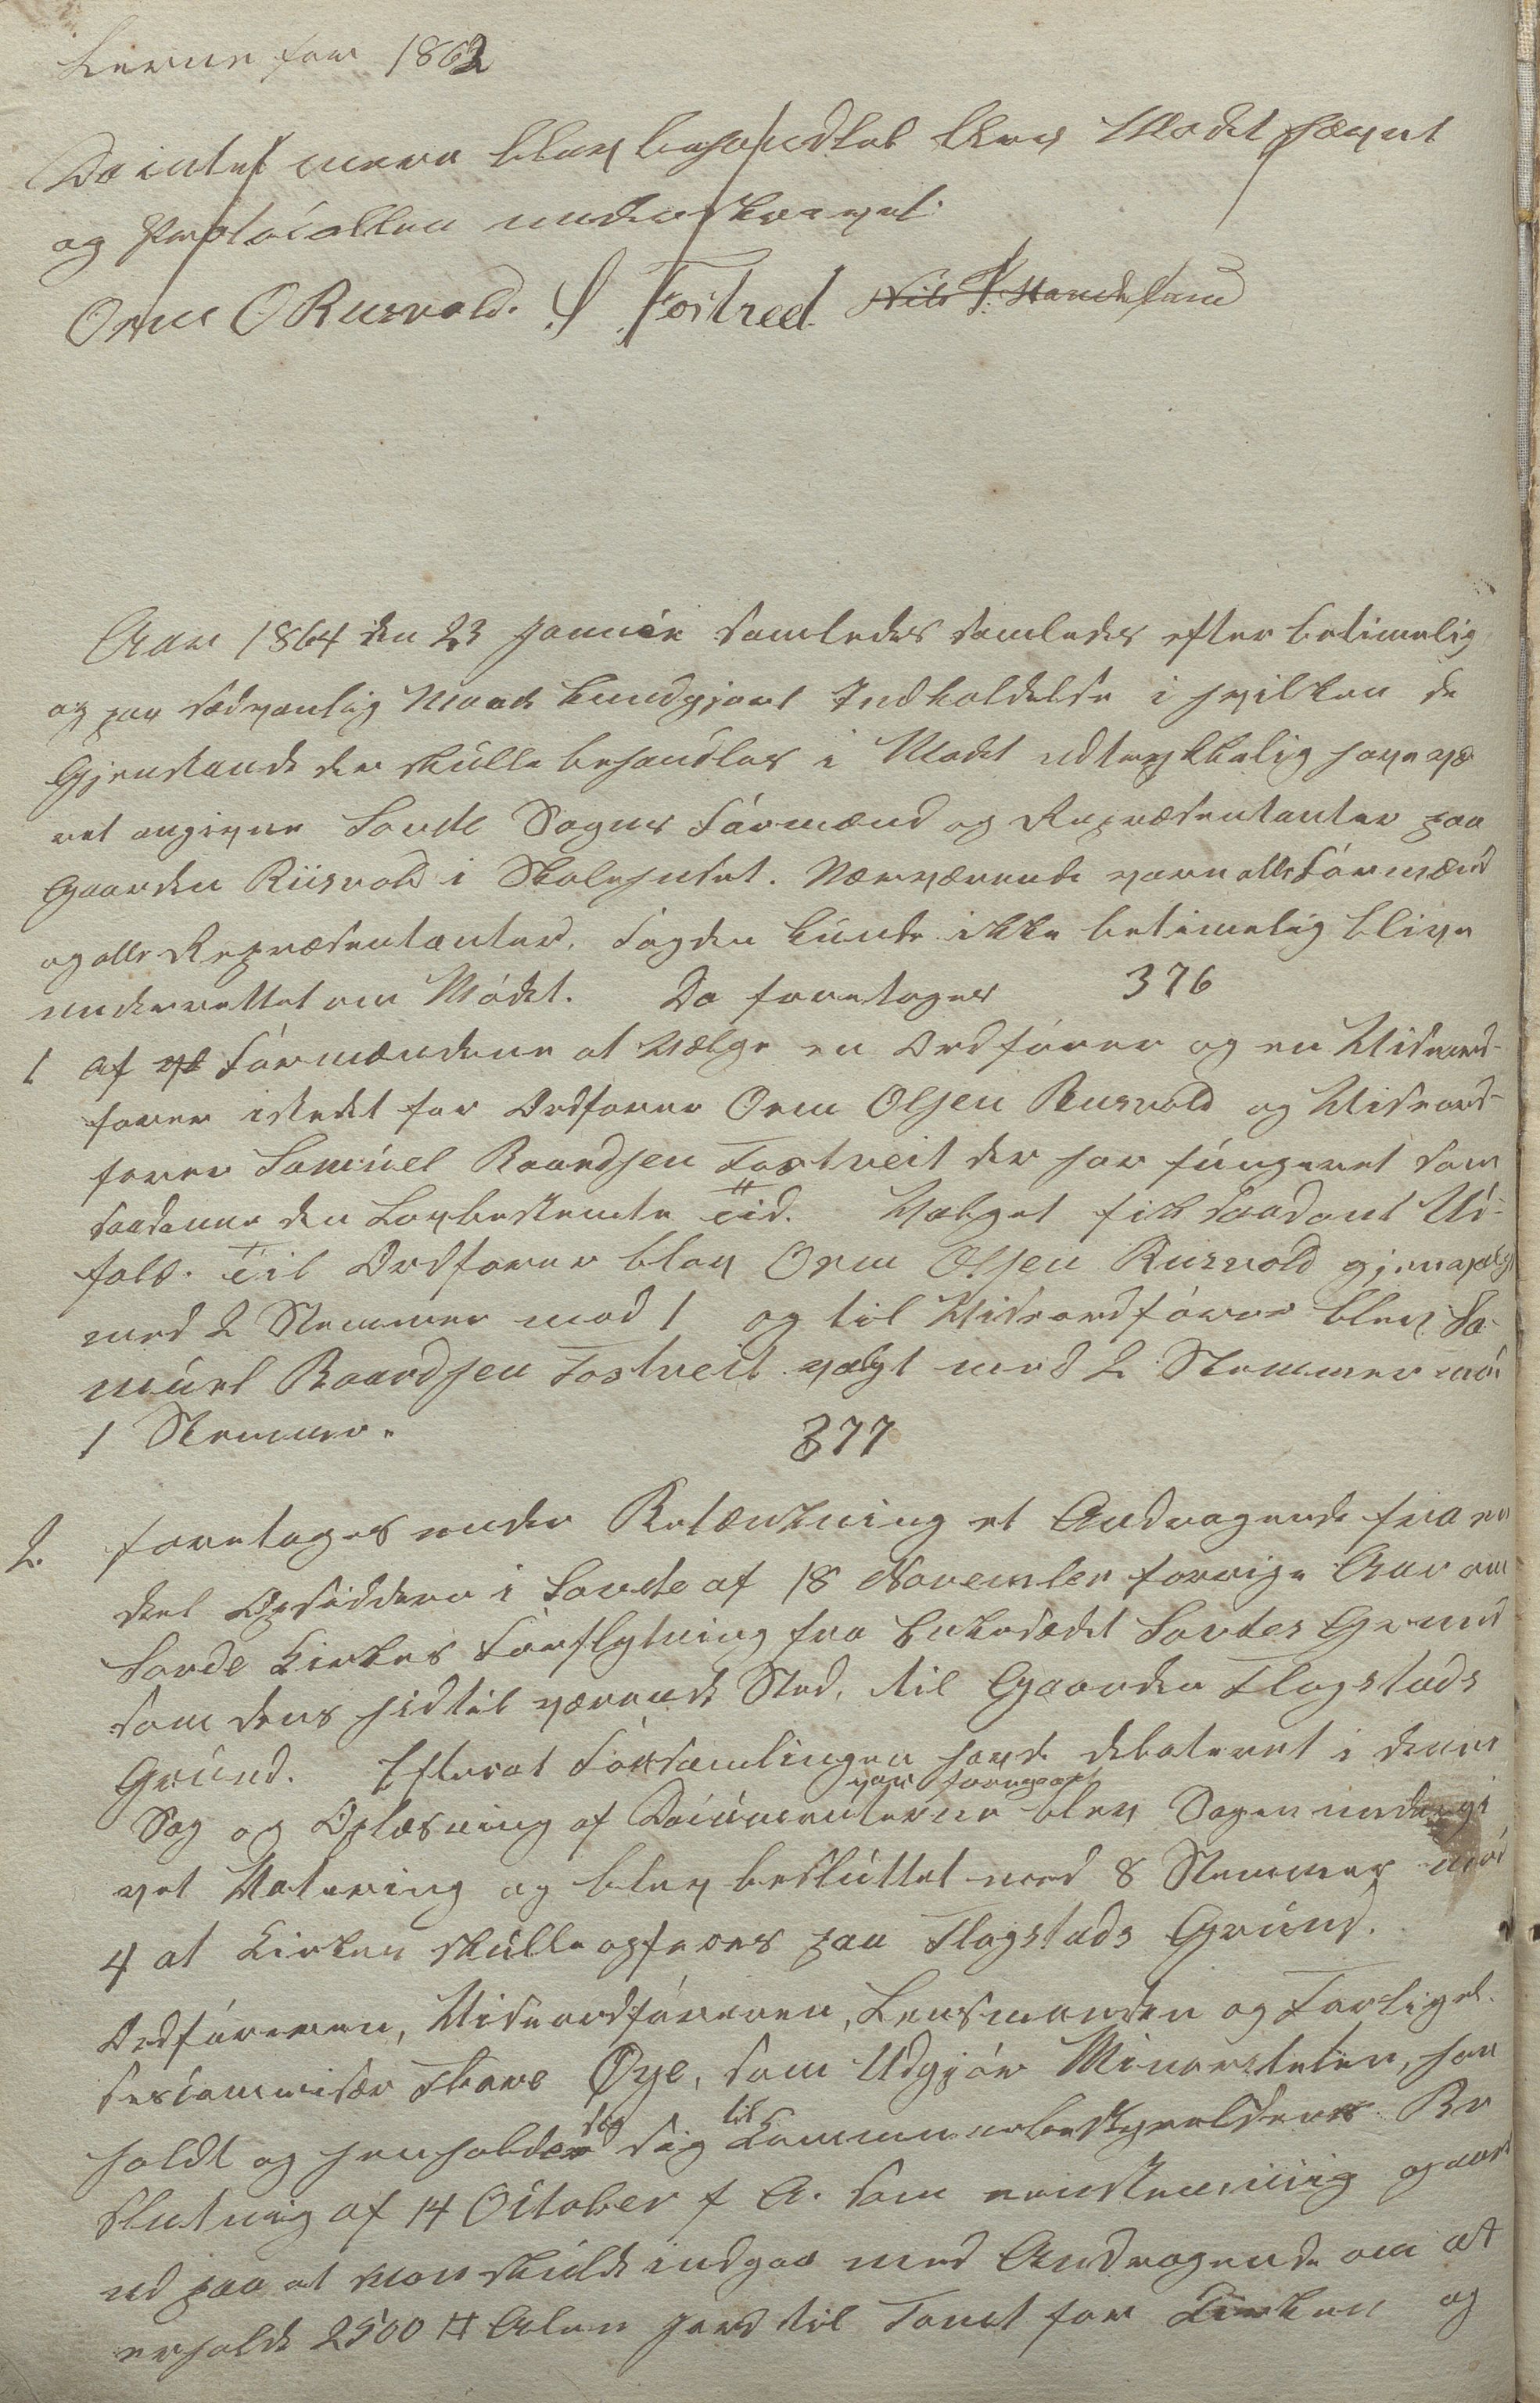 kerne for 1862
Da intet mere blev behandlet blev Mødet hævet
og Protocollen underskrevet.
Orm O Rusvold. S. Tostved. Nils
Aar 1864 den 23 Januar samledes samledes efter betimelig
og paa sædvanlig Maade kundgjort Indkaldelse i hvilken de
Gjenstande der skulle behandles i Mødet udtrykkelig have væ
ret angivne Sovde Sogns Formænd og Repræsentanter paa
Gaarden Rusvold i Skolehuset. Nærværende vare alle Formænd
og alle Repræsentanter. Fogden kunde ikke betimelig blive
underrettet om Mødet. Da foretoges 376
1 af Formændene at vælge en Ordfører og en Viseord-
forer istedet for Ordforer Orm Olsen Rusvold og Viseord-
forer Samuel Baardsen Tostveit der har fungeret som
saadanne den Lovbestemte Tid. Valget fik saadant Ud-
fald. Til Ordforer blev Orm Olsen Rusvold gjenvalgt
med 2 Stemmer mod 1 og til Viseordfører blev Sa-
muel Baardsen Tostveit valgt med 2 Stemmer mod
1 Stemmer.
377
2. foretoges under Betænkning et Andragende fra en
deel Opsiddere i Sovde af 18 November forrige Aar om
Sovde Kirkes Forflytning fra Enkesædet Sovdes Grund
som dens hidtil værende Sted, til Gaarden Flogstads
Grund. Efterat Forsamlingen havde debateret i denne
var foregaaet
Sag og Oplæsning af Documenterne blev Sagen undergi
vet Votering og blev besluttet med 8 Stemmer mod
4 at Kirken skulle opføres paa Flogstads Grund.
Ordføreren, Viseordføreren, Lensmanden og Forligel-
sescommisær Thore Øye, som Udgjør Minoriteten, har
sig til
holdt og henholder sig Kommunebestyrelsens Be
slutning af 14 October f A. som eenstemmig gaar
ud paa at man skulde indgaa med Andragende om at
erholde 2500 □ Alen Jord til Tomt for Kirken og